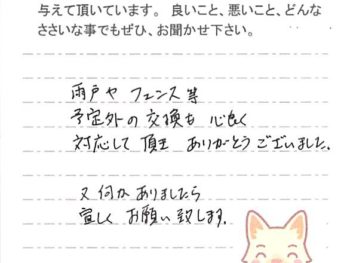 与えて頂いています。良いこと、悪いこと、どんな
ささいな事でもぜひ、お聞かせ下さい。
雨戸や フェンス等
予定外の交換も 心良く
対応して 頂き ありがとう ございました。
又 何か ありましたら
宜しく お願い 致します。